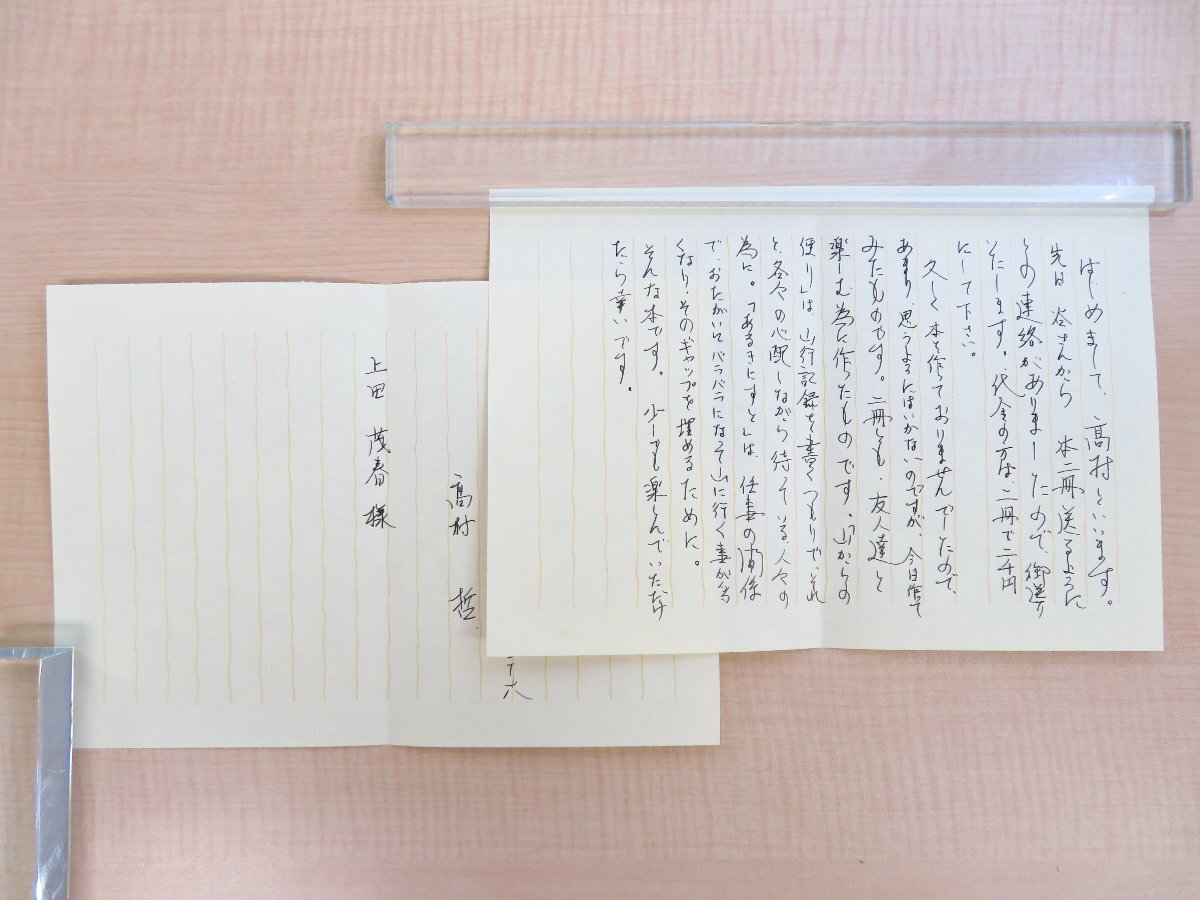 はじめまして、高村といいます。
先日 谷さんから 本二冊送るように
との連絡がありましたので、御送り
いたします。代金の方は、二冊で二千円
にして下さい。
久しく本を作っておりませんでしたので、
あまり、思うようにはいかないのですが、今日作って
みたものです。二冊とも、友人達と
楽しむ為に作ったものです。「山からの
便り」は、山行記録を書くつもりで、それ
と、各々の心配しながら待っている人々の
為に。「あるきにすと」は、
で、おたがいにバラバラになって山に行く事が多
くなり、そのギャップを埋めるために。
そんな本です。 少しでも楽しんでいただけ
たら幸いです。
高村 哲
上田 茂春 様